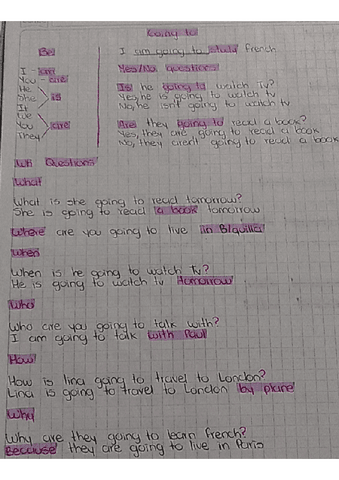 Going to
Be
I - am
You - are
He
She is
It
We
You are
They
I am going to study French
Yes/No questions
Is he going to watch Tv?
Yes, he is going to watch tv
No, he isn't going to watch tv
Are they going to read a book?
Yes, they are going to read a book
No, they aren't going to read a book
Wh Questions
What
What is she going to read tomorrow?
She is going to read a book tomorrow
Where are you going to live in B/quilla
When
When is he going to watch Tv?
He is going to watch tv tomorrow
Who
Who are you going to talk with?
I am going to talk with Paul
How
How is lina going to travel to London?
Lina is going to travel to London by plane
Why
Why are they going to learn french?
Because they are going to live in Paris